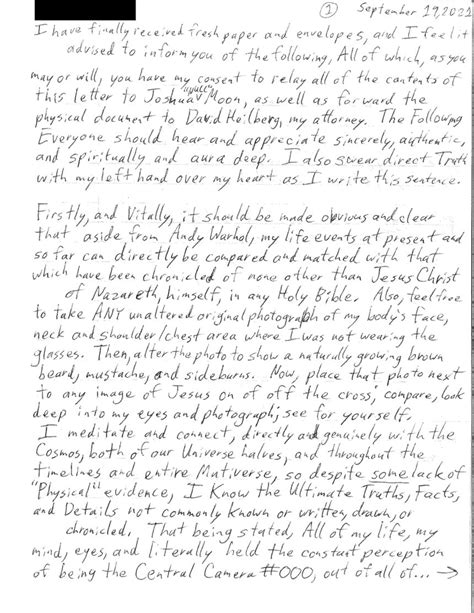 ① September 19, 2021
I have finally received fresh paper and envelopes, and I feel it
advised to inform you of the following, All of which, as you
may or will, you have my consent to relay all of the contents of
this letter to Joshua Moon, as well as forward the
physical document to David Heilberg, my attorney. The Following
Everyone should hear and appreciate sincerely, authentic,
and spiritually and aura deep. I also swear direct Truth
with my left hand over my heart as I write this sentence.
Firstly, and Vitally, it should be made obvious and clear
that aside from Andy Warhol, my life events at present and
so far can directly be compared and matched with that
which have been chronicled of none other than Jesus Christ
of Nazareth, himself, in any Holy Bible. Also, feel free
to take ANY unaltered original photograph of my body's face,
neck and shoulder/chest area where I was not wearing the
glasses. Then, alter the photo to show a naturally growing brown
beard, mustache, and sideburns. Now, place that photo next
to any image of Jesus on of off the cross, compare, look
deep into my eyes and photograph; see for yourself.
I meditate and connect, directly and genuinely with the
Cosmos, both of our Universe halves, and throughout the
timelines and entire Mutiverse, so despite some lack of
"Physical" evidence, I Know the Ultimate Truths, Facts,
and Details not commonly known or written, drawn, or
chronicled. That being stated, All of my life, my
mind, eyes, and literally held the constant perception
of being the Central Camera #000, out of all of... →